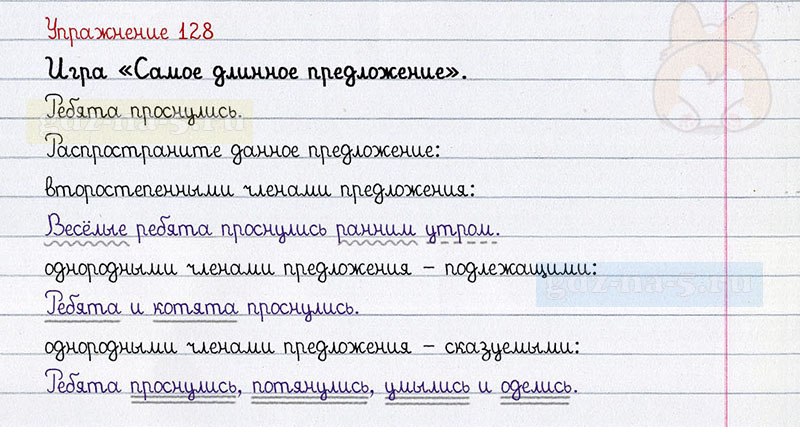 Упражнение 128
Игра «Самое длинное предложение».
Ребята проснулись.
Распространите данное предложение:
второстепенными членами предложения:
Весёлые ребята проснулись ранним утром.
однородными членами предложения – подлежащими:
gdz-na-5.ru
Ребята и котята проснулись.
однородными членами предложения – сказуемыми:
Ребята проснулись, потянулись, умылись и оделись.